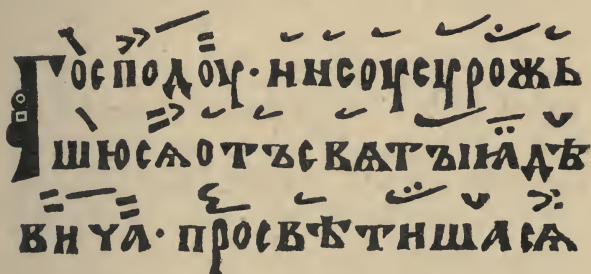 Господоу · иисоусурожь
шюсѧотъсвѧтъıꙗдѣ
вича · просвѣтишасѧ